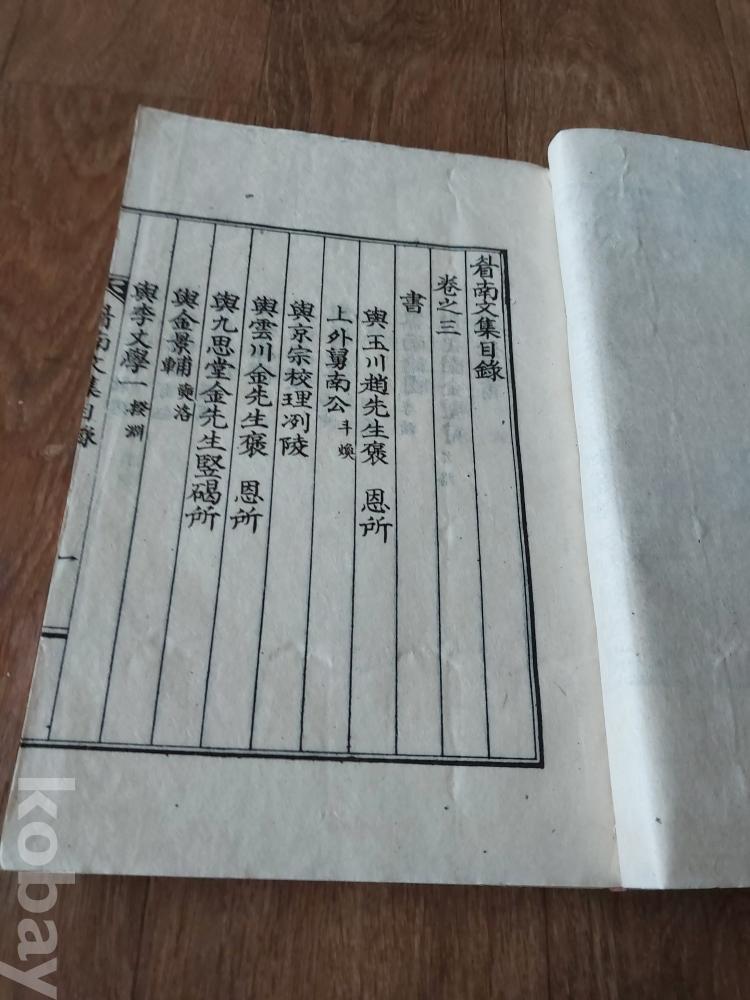 眉南文集目錄
卷之三
書
與玉川趙先生褒 恩所
上外舅南公 斗煥
與京宗校理冽陵
與雲川金先生褒 恩所
與九思堂金先生竪碣所
與金景輔 奭洛
與李文學一 掇淵
眉南文集目錄 一
kobay